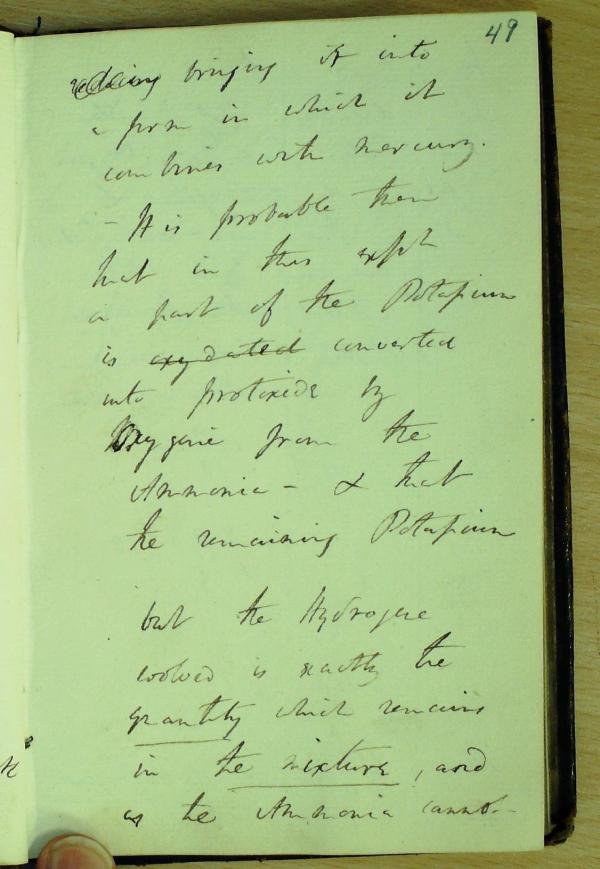 49
bringing it into
a form in which it
combines with mercury.
- It is probable then
that in this expt
a part of the Potassium
is oxydated converted
into protoxide by
Oxygene from the
Ammonia - & that
the remaining Potassium
but the Hydrogene
evolved is exactly the
quantity which remains
in the mixture, and
as the Ammonia cannot